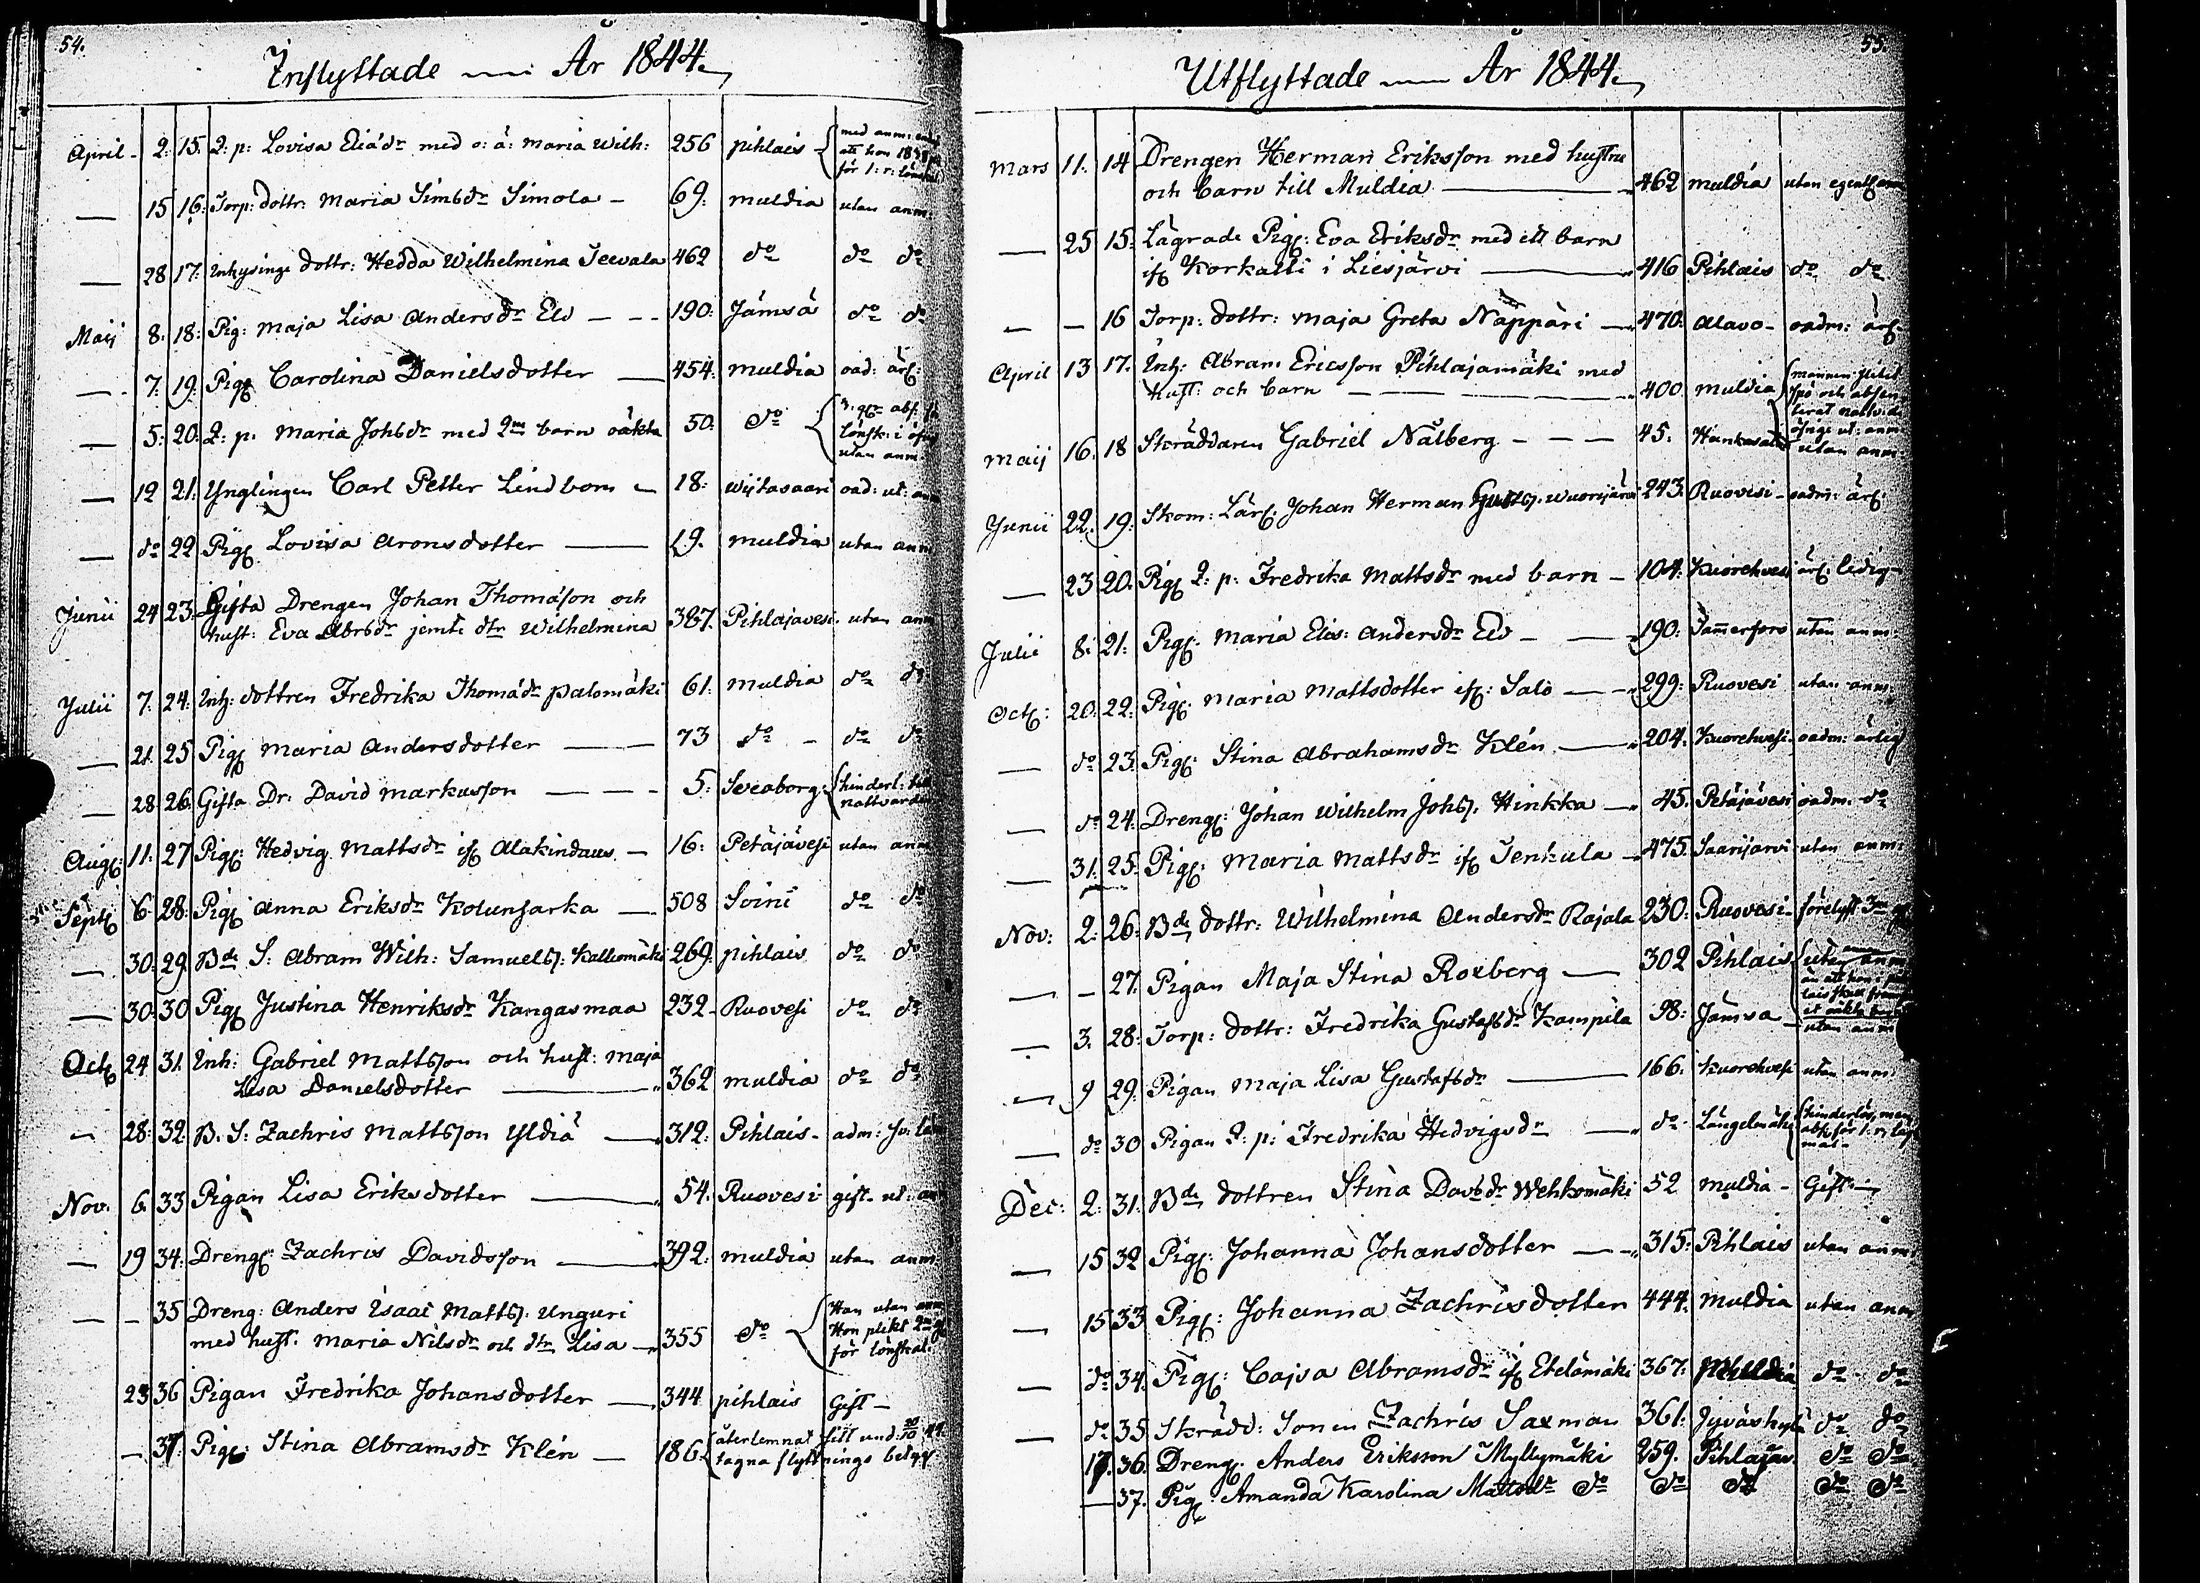 54.
Inflyttade År 1844.
April 2. 15. Q: p: Lovisa Eliædr med o: ä: Maria Wilh: 256 pihlais
med anm:
att hon 18
för 1: r: lönskal
15 16. Torp: dottr: Maria Simsdr Simola 69. muldia utan anm:
28 17. Inhysinge dottr: Hedda Wilhelmina Teevala 462 do do do
Maij 8. 18. Pig: Maja Lisa Andersdr Elo 190. Jämsä do do
7. 19. Pig Carolina Danielsdotter 454. muldia oad: ärl:
5. 20. Q: p. Maria Johsdr med 2ne barn oäkta 50. do
lönsk: i
utan anm
12 21. Ynglingen Carl Petter Lindbom 18. wiitasaari oad: ut: anm
do 22 Pig Lovisa Aronsdotter 19. muldia utan anm
Junii 24 23. Gifta Drengen Johan Thomasson och
hust: Eva Abrsdr jemte dtr Wilhelmina 387. Pihlajavesi utan anm
Julii 7. 24. Inh: dottren Fredrika Thomædr Palomäki 61. muldia do do
21. 25 Pig Maria Andersdotter 73 do do do
28 26. Gifta Dr: David Markusson 5. Sveaborg hinderl: till
nattvarden
Aug: 11. 27 Pig: Hedvig Mattsdr ifr Alakindaus 16. Petäjävesi utan anm
Sept 6. 28. Pig Anna Eriksdr Kolunsarka 508 Soini do do
30. 29. Bde S: Abram Wilh: Samuelss: Kalliomäki 269. pihlais do do
30. 30 Pig Justina Henriksdr Kangasmaa 232 Ruovesi do do
Oct 24 31. Inh: Gabriel Mattsson och hust: Maja
Lisa Danielsdotter 362 muldia do do
28. 32. B. S: Zachris Mattsson Yldiä 312. Pihlais adm: sv: läs
Nov. 6. 33 Pigan Lisa Eriksdotter 54. Ruovesi gift ut: an
19 34. Dreng: Zachris Davidsson 392. muldia utan anm.
35 Dreng: Anders Isaac Mattss: Unguri
med hust. Maria Nilsdr och dtr Lisa 355 do
Han utan anm
Hon plikt 2ne g
för lönskal.
23 36 Pigan Fredrika Johansdotter 344 pihlais Gift
37. Pig: Stina Abramsdr Klén 186. återlemnat sitt und: 20/10 44
tagna flyttnings betyg
55.
Utflyttade År 1844.
Mars 11. 14 Drengen Herman Eriksson med hustru
och barn till Muldia 462 muldia utan
25 15. Lägrade Pig: Eva Eriksdr med ett barn
ifr Korkatti i Liesjärvi 416 Pihlais do do
16 Torp: dottr: Maja Greta Näppäri 470. Alavo oadm: ärl:
April 13 17. Inh: Abram Ericsson Pihlajamäki med
Hust: och barn 400 muldia
mannen
Maij 16. 18 Skräddaren Gabriel Nälberg 45. utan anm:
Junii 22. 19. Skom: Lärl: Johan Herman Gusts: Wuorijärvi 243. Ruovesi oadm: ärl:
23 20. Pig Q: p: Fredrika Mattsdr med barn 104. Kuorehvesi ärl: ledig
Julii 8. 21. Pig: Maria Elis: Andersdr Elo 190. Tammerfors utan anm:
Oct: 20. 22. Pig: Maria Mattsdotter ifr: Salo 299. Ruovesi utan anm
do 23. Pig: Stina Abrahamsdr Klén 204. Kuorehvesi oadm: ärlig
do 24. Dreng: Johan Wilhelm Johss: Hinkka 45. Petäjävesi oadm: do
31. 25. Pig: Maria Mattsdr ifr Jenkula 475. Saarijärvi utan anm:
Nov: 2. 26. Bde dottr: Wilhelmina Andersdr Rajala 230. Ruovesi
27. Pigan Maja Stina Roxberg 302 Pihlais utan anm
3. 28. Torp: dottr: Fredrika Gustafsdr Kampila 98. Jämsä utan anm
9 29. Pigan Maja Lisa Gustafsdr 166. Kuorehvesi utan anm
do 30 Pigan Q: p: Fredrika Hedvigsdr do Längelmäki hinderlös, men
för
Dec: 2. 31. Bde dottren Stina Davsdr Wehkomäki 52 muldia Gift
15 32 Pig: Johanna Johansdotter 315. Pihlais utan anm
15 33 Pig: Johanna Zachrisdotter 444. muldia utan anm
do 34. Pig: Cajsa Abramsdr ifr Etelämäki 367. Muldia do do
do 35 Skrädd: Sonen Zachris Saxman 361. Jyväskylä do do
17. 36. Dreng: Anders Eriksson Myllymäki 259. Pihlajav. do do
37. Pig: Amanda Karolina Mattsdr do do do do do